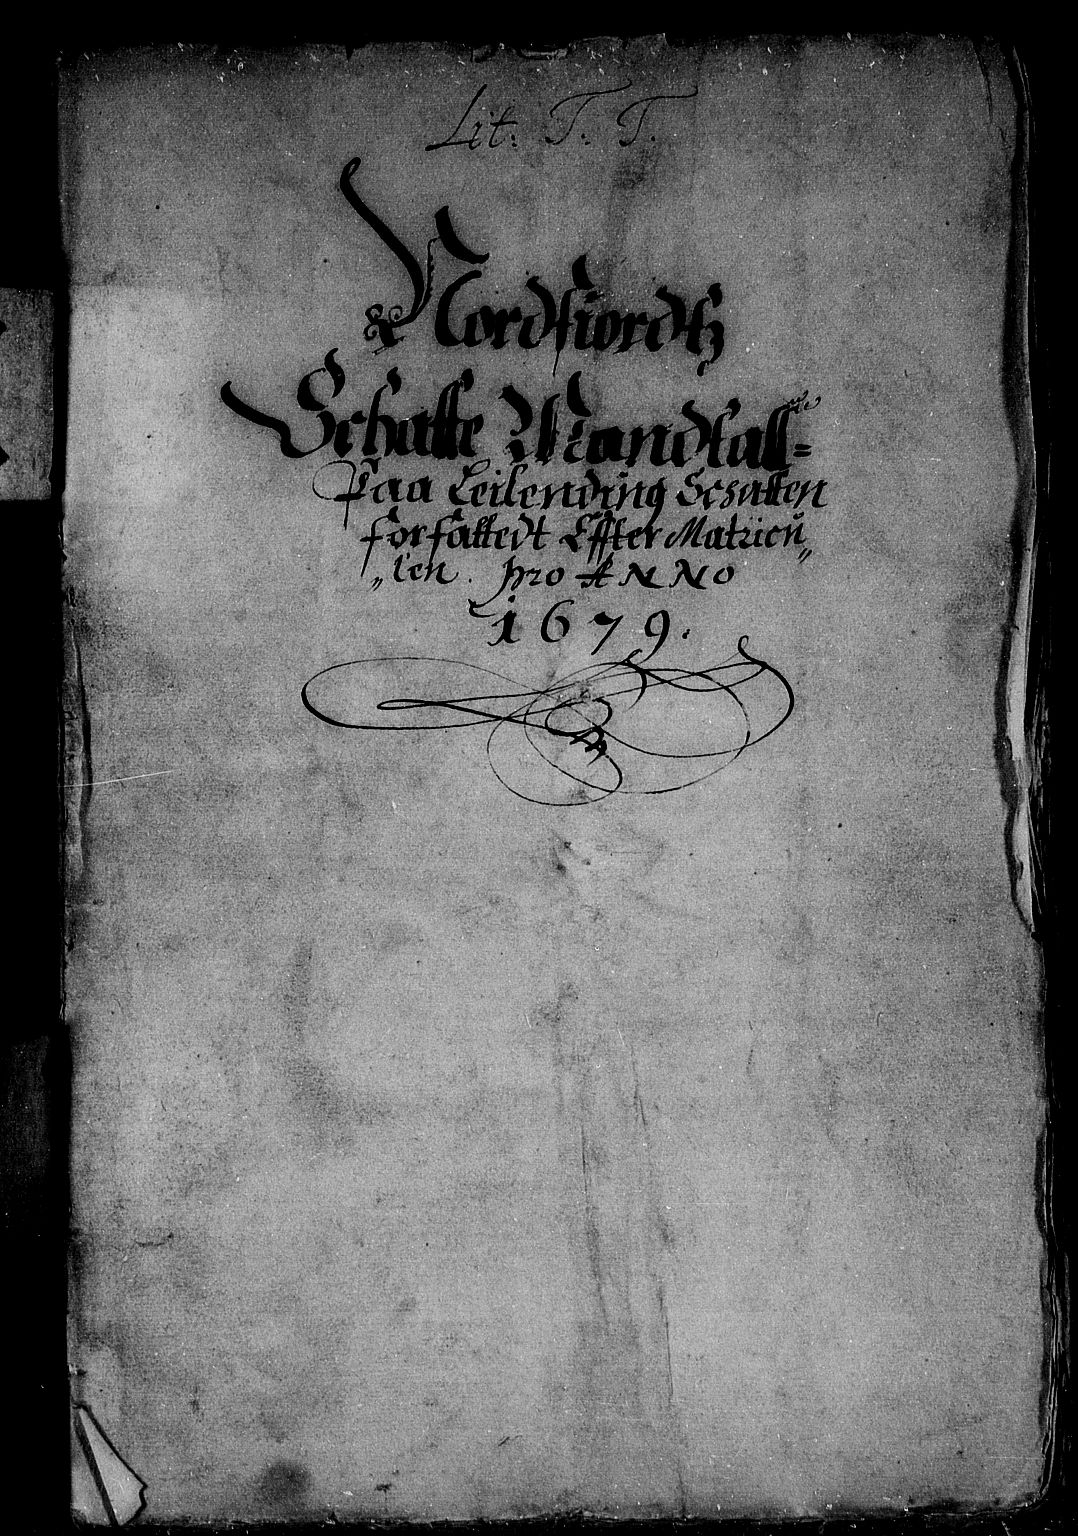 Lit: T. T.
Nordfiordtz
Schatte Mandtall=
Paa Leilending Schatten
forfattedt Effter Matricu„
„len. pro ANNO
1679.